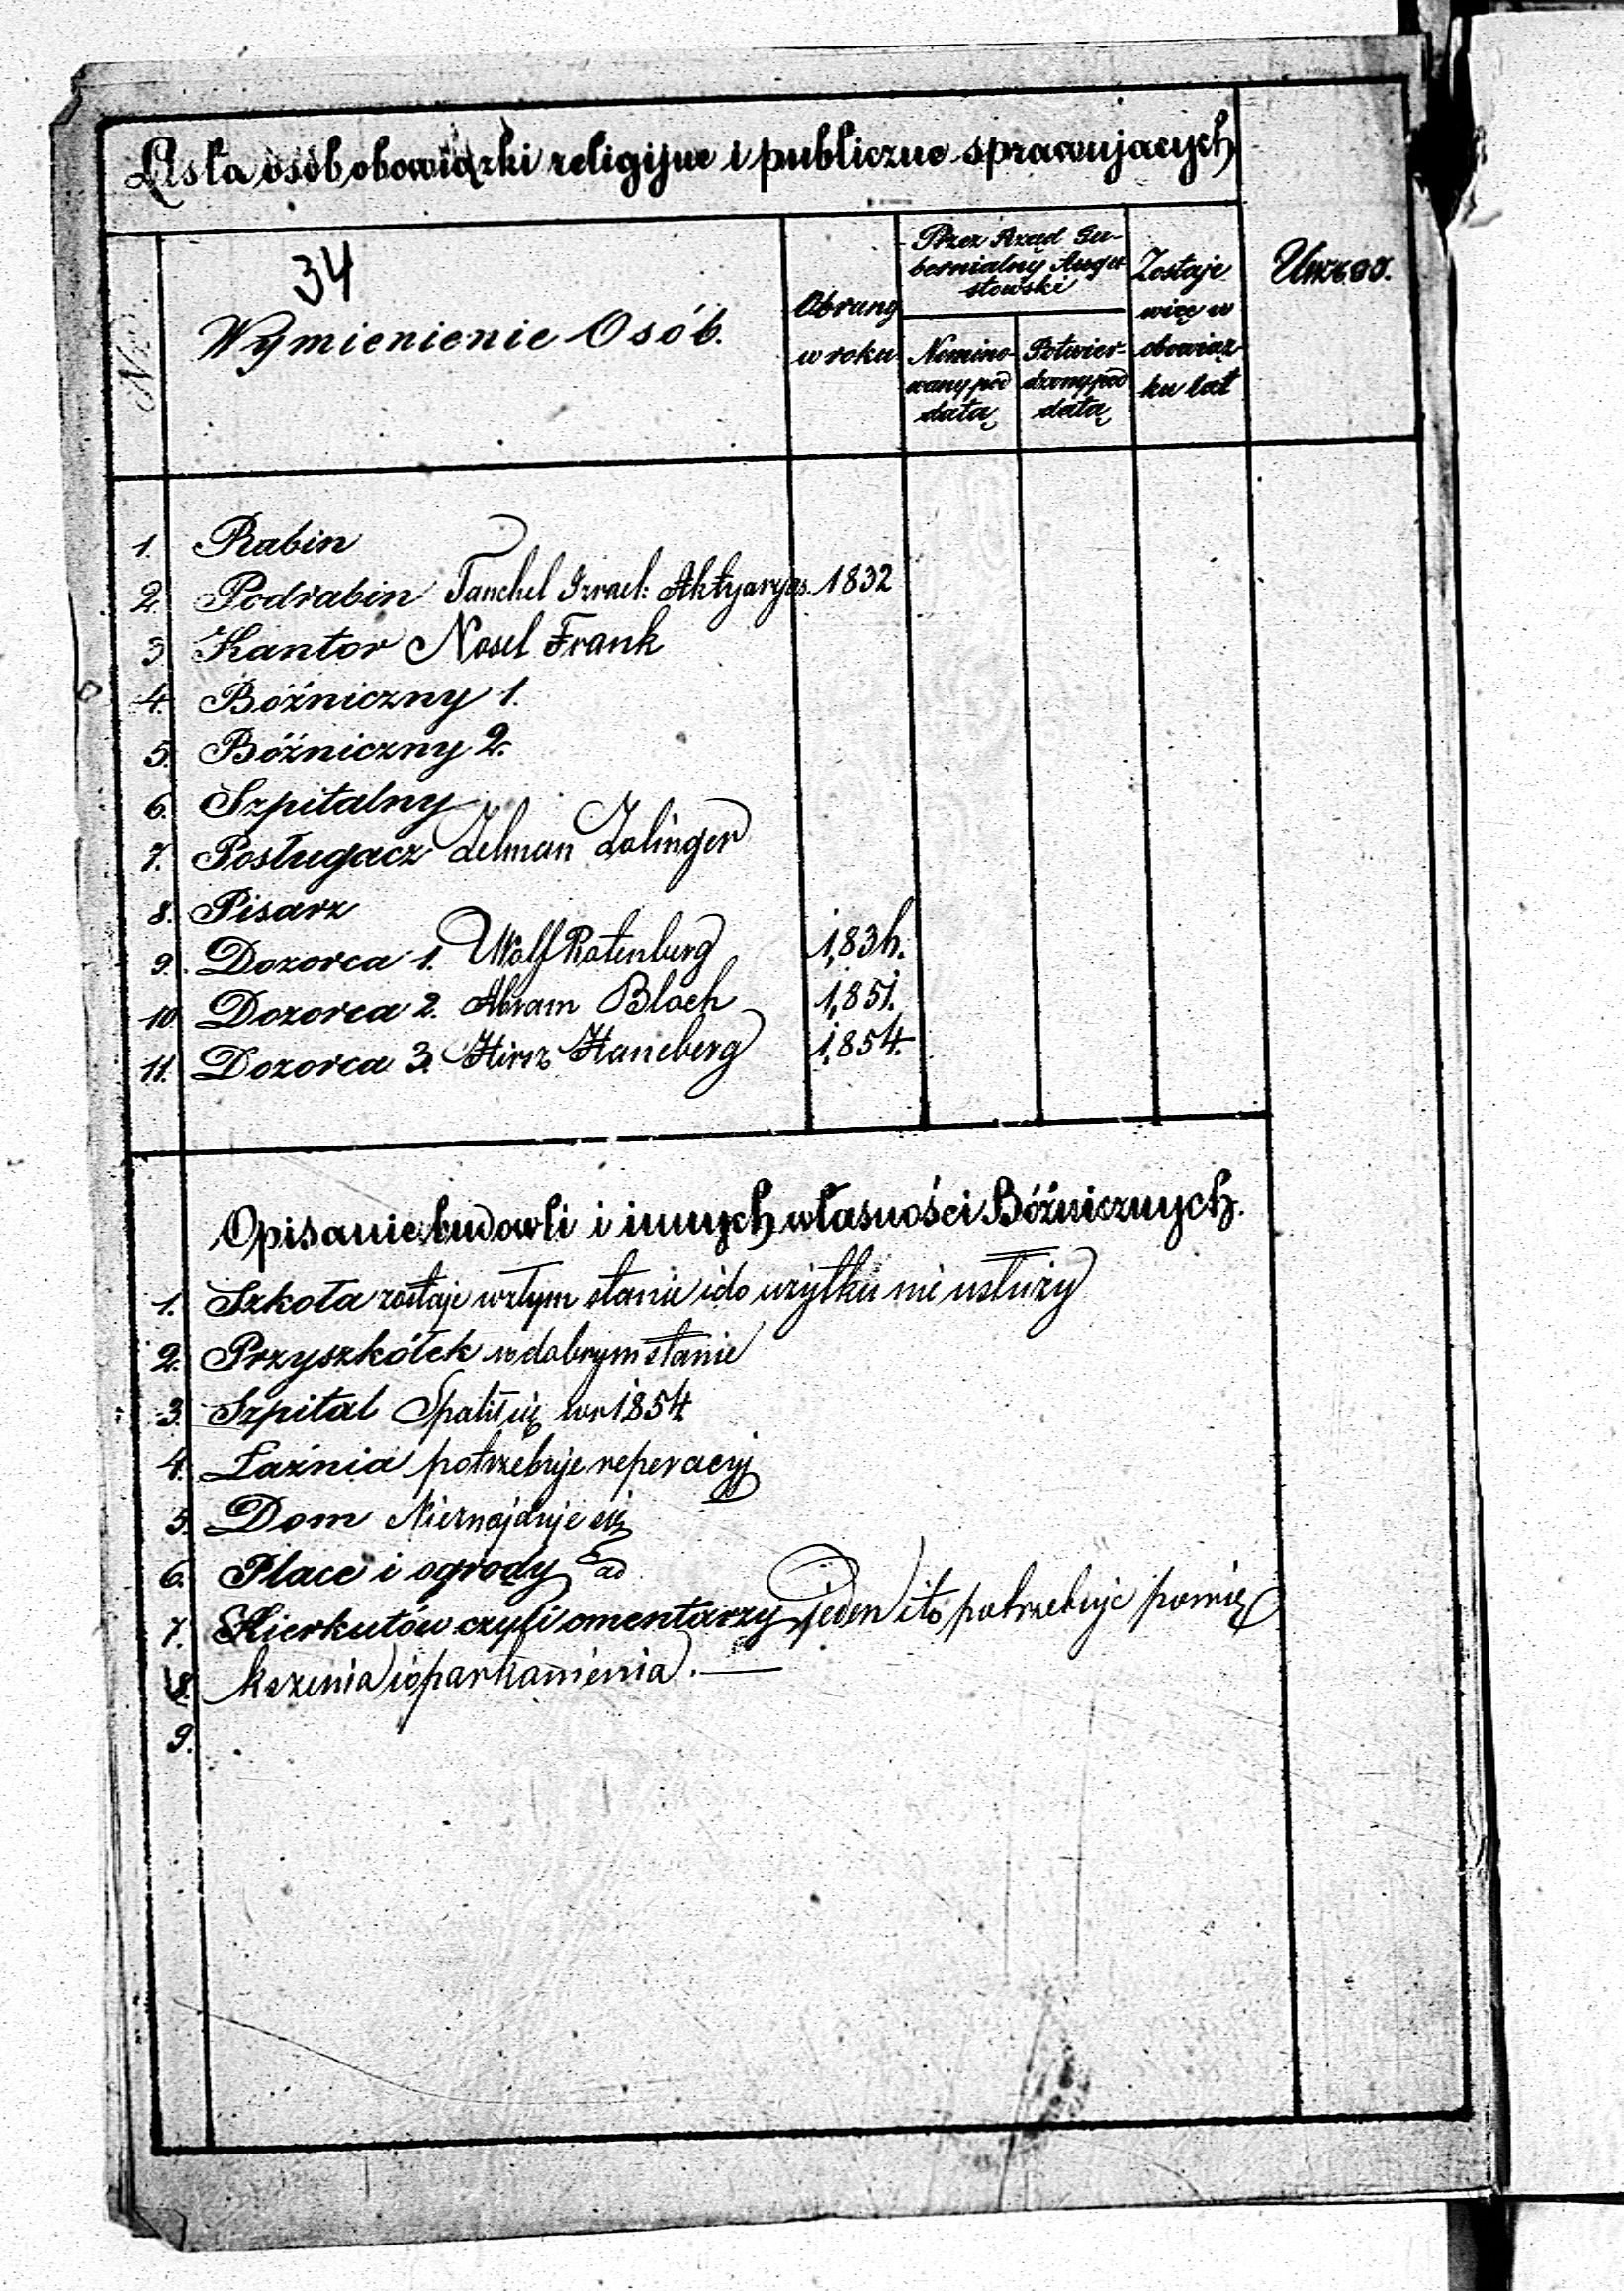 Lista osób obowiązki religijne i publiczne sprawujących
34
Nro.
Wymienienie Osób.
Obrany
w roku
Przez Rząd Gu-
bernialny Augu-
stowski
Nomino-
wany pod
datą
Potwier-
dzony pod
datą
Zostaje
więc w
obowiąz-
ku lat
1. Rabin
2. Podrabin Tanchel Izrael: 1832
3. Kantor Nosel Frank
4. Bóźniczny 1.
5. Bóźniczny 2.
6. Szpitalny
7. Posługacz Zelman Zolinger
8. Pisarz
9. Dozorca 1. Wolf Rotenberg
10. Dozorca 2. Abram Bloch 1,851.
11. Dozorca 3. Hirsz Haneberg 1,854.
Opisanie budowli i innych własności Bóźnicznych.
1. Szkoła zostaje w złym stanie i do użytku nie usłuży
2. Przyszkółek w dobrym stanie
3. Szpital Spalił się w r 1854
4. Łaźnia potrzebuje reperacyj
5. Dom Nieznajduje się
6. Place i ogrody
7. Kierkutów czyli cmentarzy jeden i to potrzebuje powię
8. kszenia i oparkanienia. —
9.